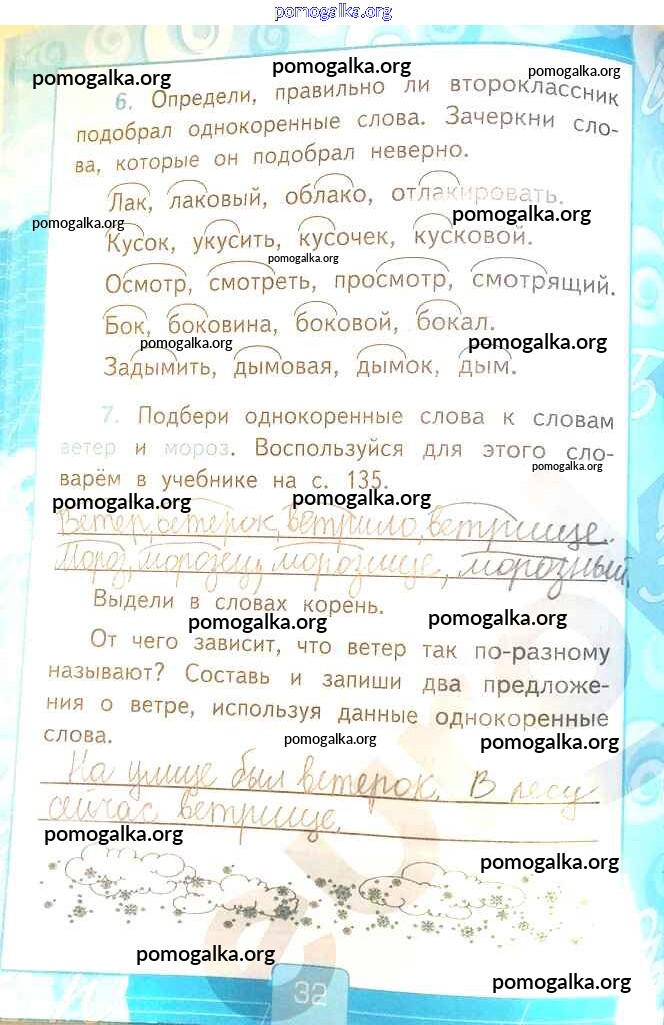 pomogalka.org
pomogalka.org
pomogalka.org
pomogalka.org
6. Определи, правильно ли второклассник
подобрал однокоренные слова. Зачеркни сло-
ва, которые он подобрал неверно.
Лак, лаковый, облако, отлакировать.
pomogalka.org
pomogalka.org
Кусок, укусить, кусочек, кусковой.
pomogalka.org
Осмотр, смотреть, просмотр, смотрящий.
Бок, боковина, боковой, бокал.
pomogalka.org
pomogalka.org
Задымить, дымовая, дымок, дым.
7. Подбери однокоренные слова к словам
ветер и мороз. Воспользуйся для этого сло-
pomogalka.org
варём в учебнике на с. 135.
pomogalka.org
pomogalka.org
Ветер, ветерок, ветрило, ветрище.
Мороз, морозец, морозище, морозный.
Выдели в словах корень.
pomogalka.org
pomogalka.org
От чего зависит, что ветер так по-разному
называют? Составь и запиши два предложе-
ния о ветре, используя данные однокоренные
слова.
pomogalka.org
pomogalka.org
На улице был ветерок. В лесу
сейчас ветрище.
pomogalka.org
pomogalka.org
pomogalka.org
pomogalka.org
32